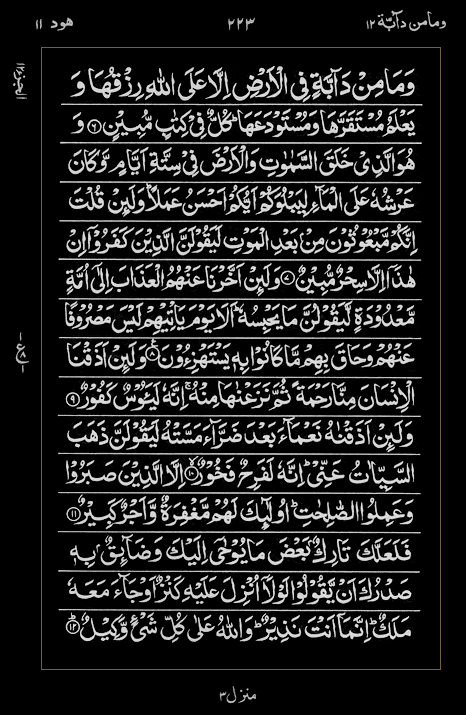 ومامن دآبّة ١٢
٢٢٣
هود ١١
الجزء ١٢
وَمَا مِنْ دَآبَّةٍ فِى الْاَرْضِ اِلَّا عَلَى اللّٰهِ رِزْقُهَا وَ
يَعْلَمُ مُسْتَقَرَّهَا وَمُسْتَوْدَعَهَا ؕ كُلٌّ فِىْ كِتٰبٍ مُّبِيْنٍ ﴿٦﴾ وَ
هُوَ الَّذِىْ خَلَقَ السَّمٰوٰتِ وَالْاَرْضَ فِىْ سِتَّةِ اَيَّامٍ وَّكَانَ
عَرْشُهٗ عَلَى الْمَآءِ لِيَبْلُوَكُمْ اَيُّكُمْ اَحْسَنُ عَمَلًا ؕ وَلَئِنْ قُلْتَ
اِنَّكُمْ مَّبْعُوْثُوْنَ مِنْۢ بَعْدِ الْمَوْتِ لَيَقُوْلَنَّ الَّذِيْنَ كَفَرُوْۤا اِنْ
هٰذَاۤ اِلَّا سِحْرٌ مُّبِيْنٌ ﴿٧﴾ وَلَئِنْ اَخَّرْنَا عَنْهُمُ الْعَذَابَ اِلٰٓى اُمَّةٍ
مَّعْدُوْدَةٍ لَّيَقُوْلُنَّ مَا يَحْبِسُهٗ ؕ اَلَا يَوْمَ يَاْتِيْهِمْ لَيْسَ مَصْرُوْفًا
عَنْهُمْ وَحَاقَ بِهِمْ مَّا كَانُوْا بِهٖ يَسْتَهْزِءُوْنَ ﴿٨﴾ وَلَئِنْ اَذَقْنَا
الْاِنْسَانَ مِنَّا رَحْمَةً ثُمَّ نَزَعْنٰهَا مِنْهُ ۚ اِنَّهٗ لَيَـُٔوْسٌ كَفُوْرٌ ﴿٩﴾
وَلَئِنْ اَذَقْنٰهُ نَعْمَآءَ بَعْدَ ضَرَّآءَ مَسَّتْهُ لَيَقُوْلَنَّ ذَهَبَ
السَّيِّاٰتُ عَنِّىْ ؕ اِنَّهٗ لَفَرِحٌ فَخُوْرٌ ﴿١٠﴾ اِلَّا الَّذِيْنَ صَبَرُوْا
وَعَمِلُوا الصّٰلِحٰتِ ؕ اُولٰٓئِكَ لَهُمْ مَّغْفِرَةٌ وَّاَجْرٌ كَبِيْرٌ ﴿١١﴾
فَلَعَلَّكَ تَارِكٌۢ بَعْضَ مَا يُوْحٰٓى اِلَيْكَ وَضَآئِقٌۢ بِهٖ
صَدْرُكَ اَنْ يَّقُوْلُوْا لَوْلَاۤ اُنْزِلَ عَلَيْهِ كَنْزٌ اَوْ جَآءَ مَعَهٗ
مَلَكٌ ؕ اِنَّمَاۤ اَنْتَ نَذِيْرٌ ؕ وَاللّٰهُ عَلٰى كُلِّ شَىْءٍ وَّكِيْلٌ ﴿١٢﴾
منزل ٣